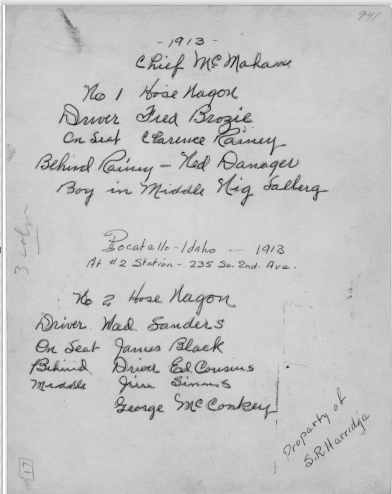 941
- 1913 -
Chief McMahan
No 1 Hose Wagon
Driver Fred Brozie
On Seat Clarence Rainey
Behind Rainey - Ned Danager
Boy in Middle Nig Salberg
3 column
Pocatello - Idaho - 1913
At #2 Station - 235 So. 2nd. Ave.
No 2 Hose Wagon
Driver Wad Sanders
On Seat James Black
Behind Driver Ed Cousins
Middle Jim Simms
George McConkey
Property of
S.R. Harridge
17